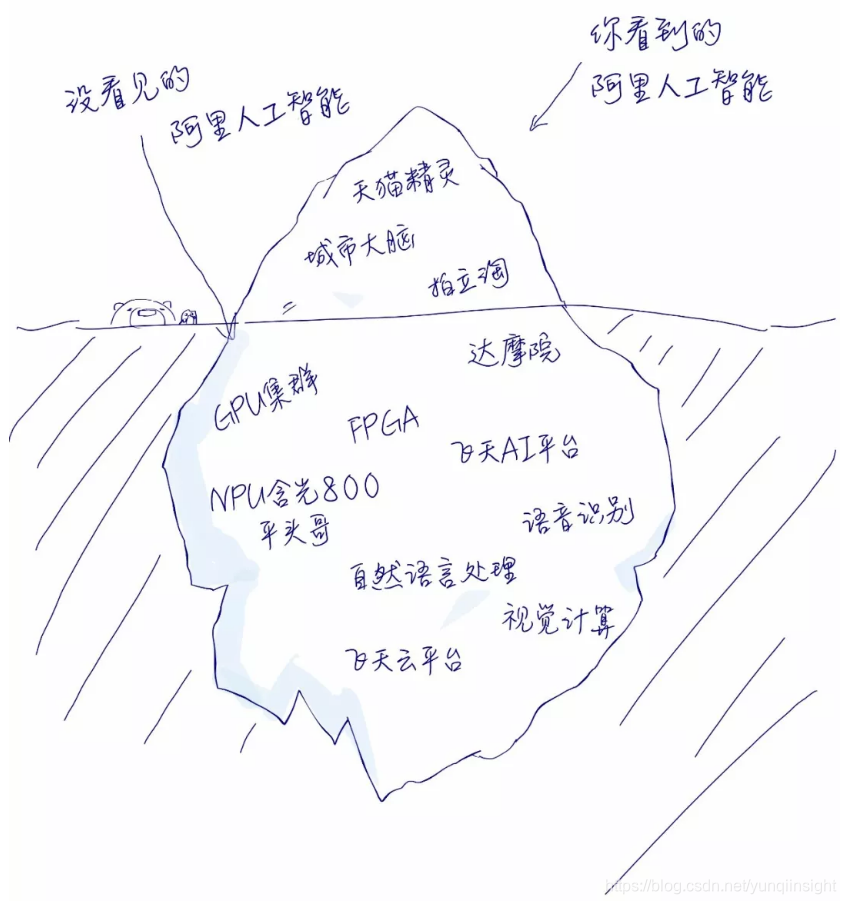 你看到的
阿里人工智能
没看见的
阿里人工智能
天猫精灵
城市大脑
拍立淘
达摩院
GPU集群
FPGA
飞天AI平台
NPU含光800
平头哥
语音识别
自然语言处理
视觉计算
飞天云平台
https://blog.csdn.net/yunqiinsight